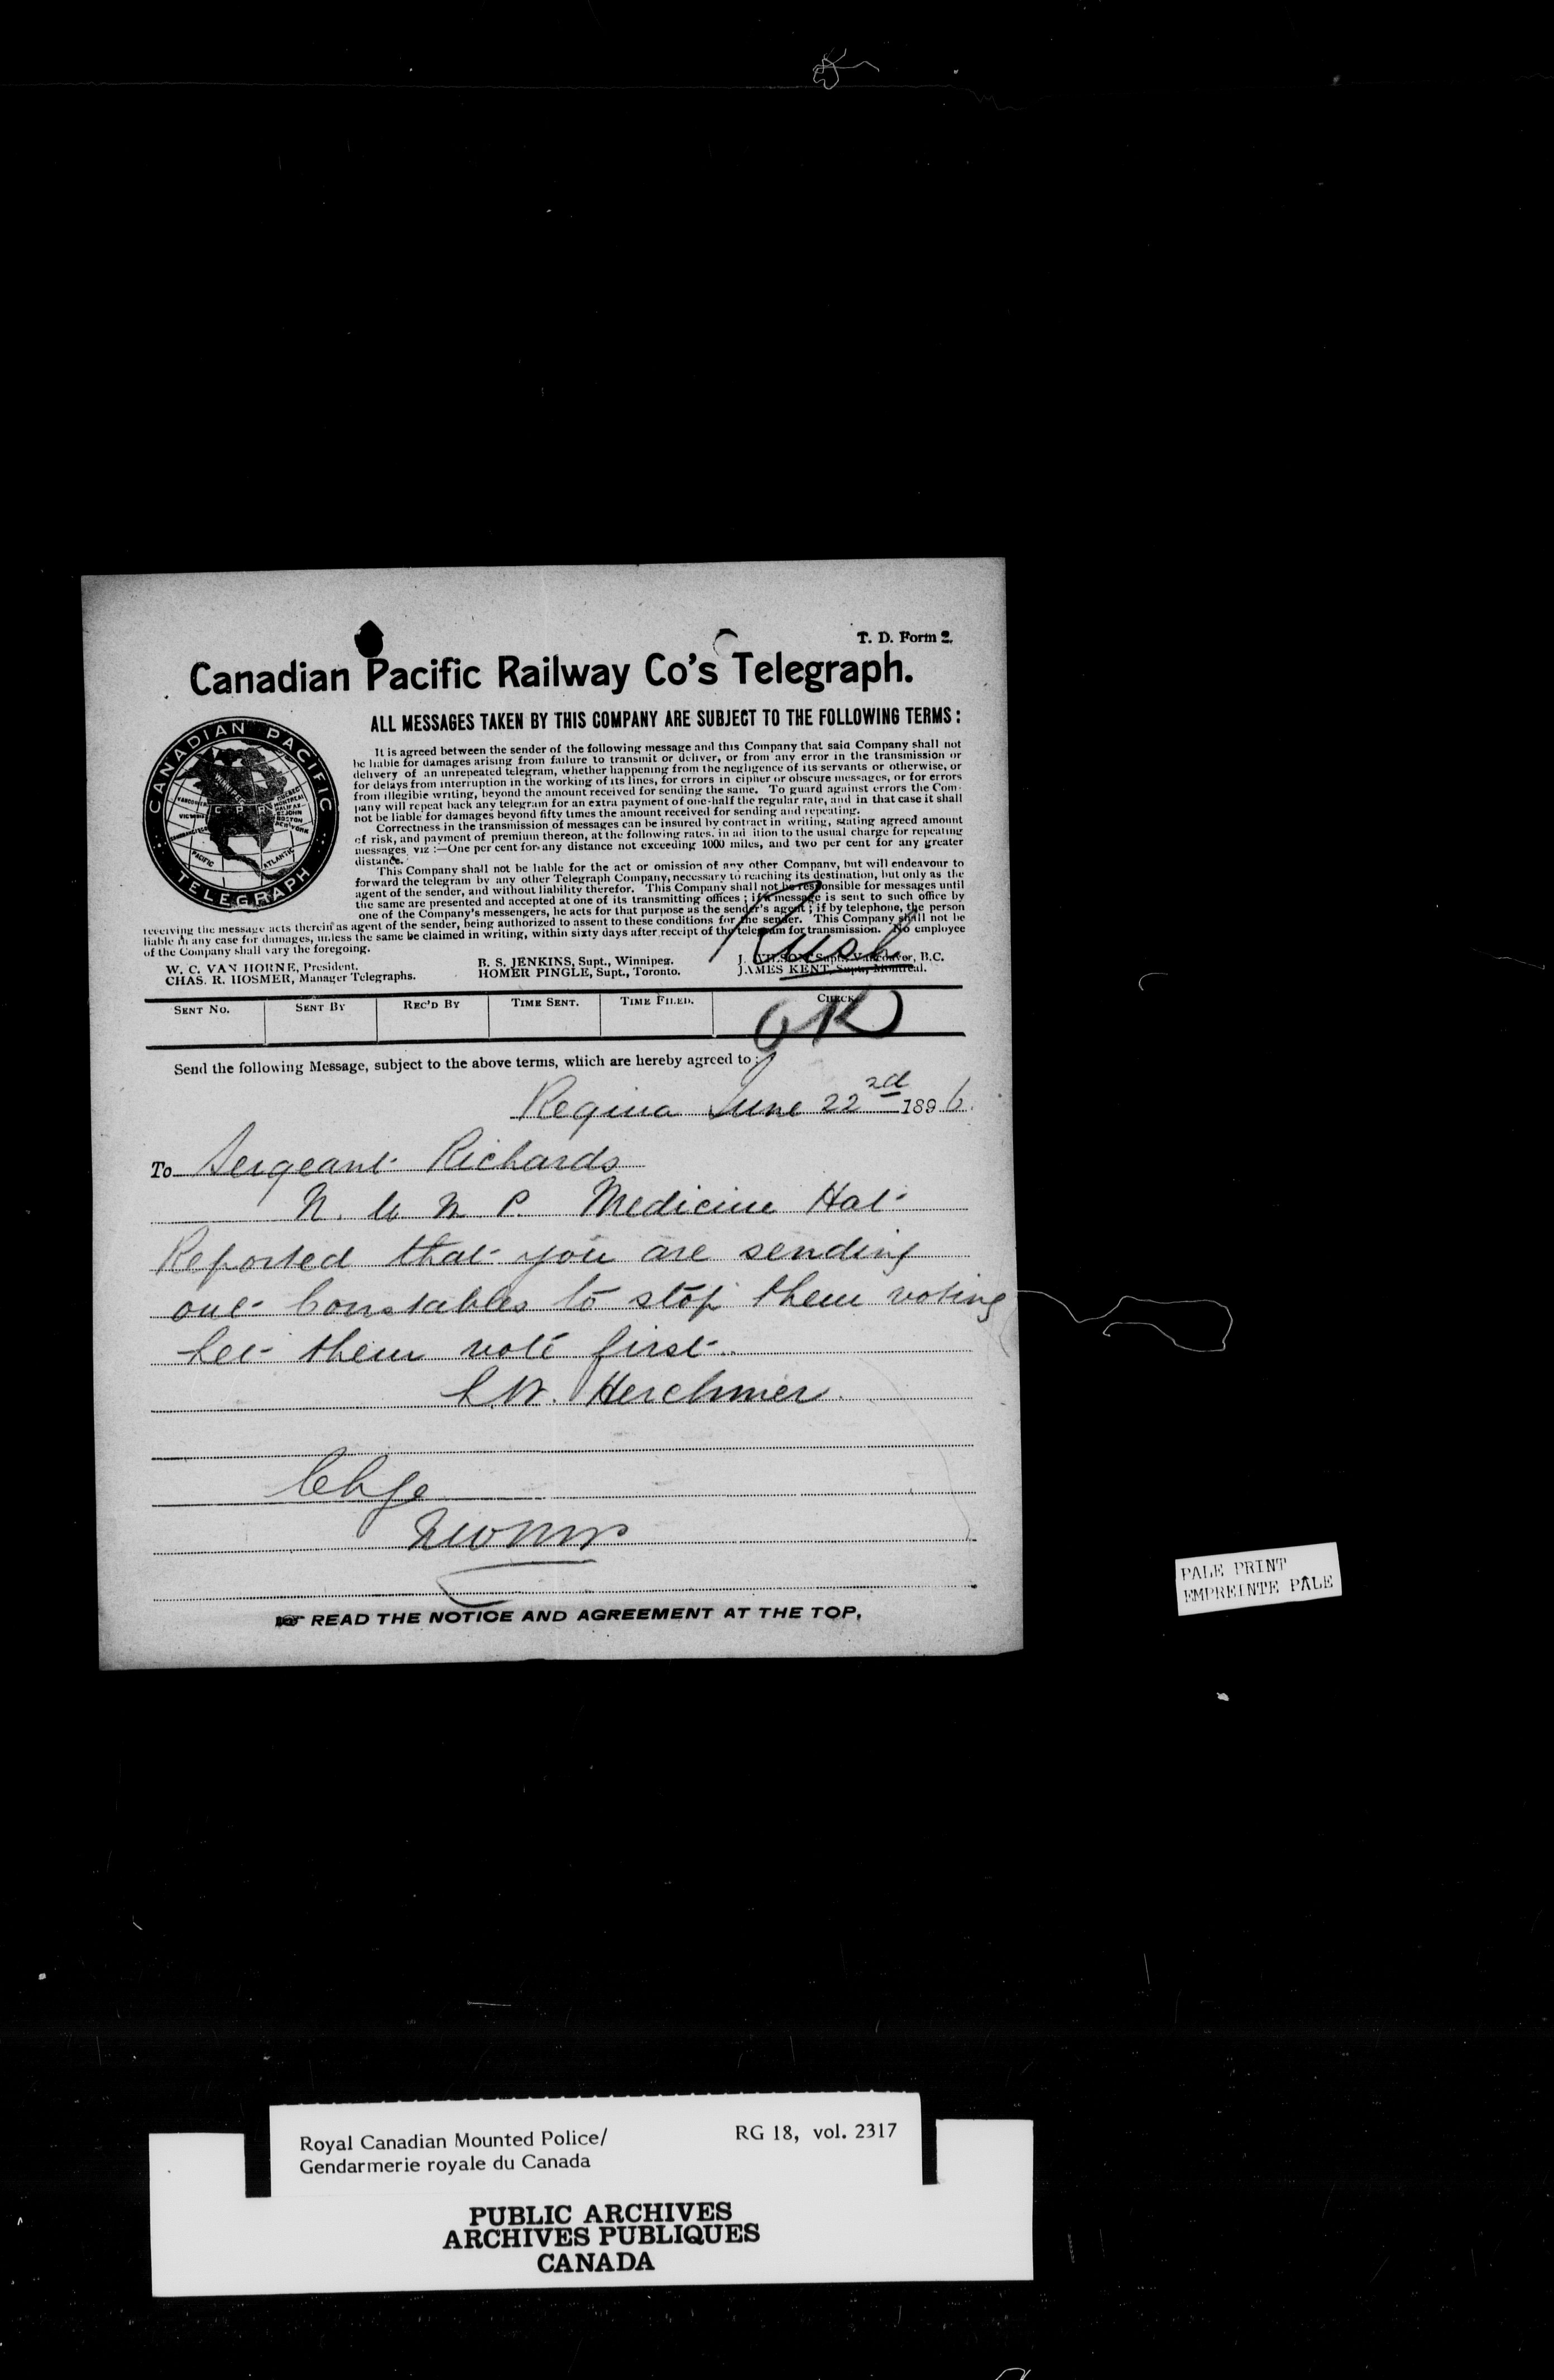 T. D. Form 2.
Canadian Pacific Railway Co's Telegraph.
ALL MESSAGES TAKEN BY THIS COMPANY ARE SUBJECT TO THE FOLLOWING TERMS:
CANADIAN PACIFIC
TELEGRAPH
C P R
PACIFIC
ATLANTIC
It is agreed between the sender of the following message and this Company that said Company shall not
be liable for damages arising from failure to transmit or deliver, or from any error in the transmission or
delivery of an unrepeated telegram, whether happening from the negligence of its servants or otherwise, or
for delays from interruption in the working of its lines, for errors in cipher or obscure messages, or for errors
from illegible writing, beyond the amount received for sending the same. To guard against errors the Com-
pany will repeat back any telegram for an extra payment of one-half the regular rate, and in that case it shall
not be liable for damages beyond fifty times the amount received for sending and repeating.
Correctness in the transmission of messages can be insured by contract in writing, stating agreed amount
of risk, and payment of premium thereon, at the following rates, in ad ition to the usual charge for repeating
messages viz :—One per cent for any distance not exceeding 1000 miles, and two per cent for any greater
distance.
This Company shall not be liable for the act or omission of any other Company, but will endeavour to
forward the telegram by any other Telegraph Company, necessary to reaching its destination, but only as the
agent of the sender, and without liability therefor. This Company shall not be responsible for messages until
the same are presented and accepted at one of its transmitting offices ; if a message is sent to such office by
one of the Company's messengers, he acts for that purpose as the sender's agent ; if by telephone, the person
receiving the message acts therein as agent of the sender, being authorized to assent to these conditions for the sender. This Company shall not be
liable in any case for damages, unless the same be claimed in writing, within sixty days after receipt of the telegram for transmission. No employee
of the Company shall vary the foregoing.
Rush
W. C. VAN HORNE, President.
CHAS. R. HOSMER, Manager Telegraphs.
B. S. JENKINS, Supt., Winnipeg.
HOMER PINGLE, Supt., Toronto.
J. WILSON, Supt., Vancouver, B.C.
JAMES KENT, Supt., Montreal.
SENT NO. SENT BY REC'D BY TIME SENT. TIME FILED. CHECK
OK
Send the following Message, subject to the above terms, which are hereby agreed to :
Regina June 22nd 1896.
To Sergeant Richards
N. W. M. P. Medicine Hat
Reported that you are sending
out Constables to stop them voting
Let them vote first.
L. W. Herchmer.
Chge
NWMP
READ THE NOTICE AND AGREEMENT AT THE TOP.
PALE PRINT
EMPREINTE PÂLE
Royal Canadian Mounted Police/ RG 18, vol. 2317
Gendarmerie royale du Canada
PUBLIC ARCHIVES
ARCHIVES PUBLIQUES
CANADA